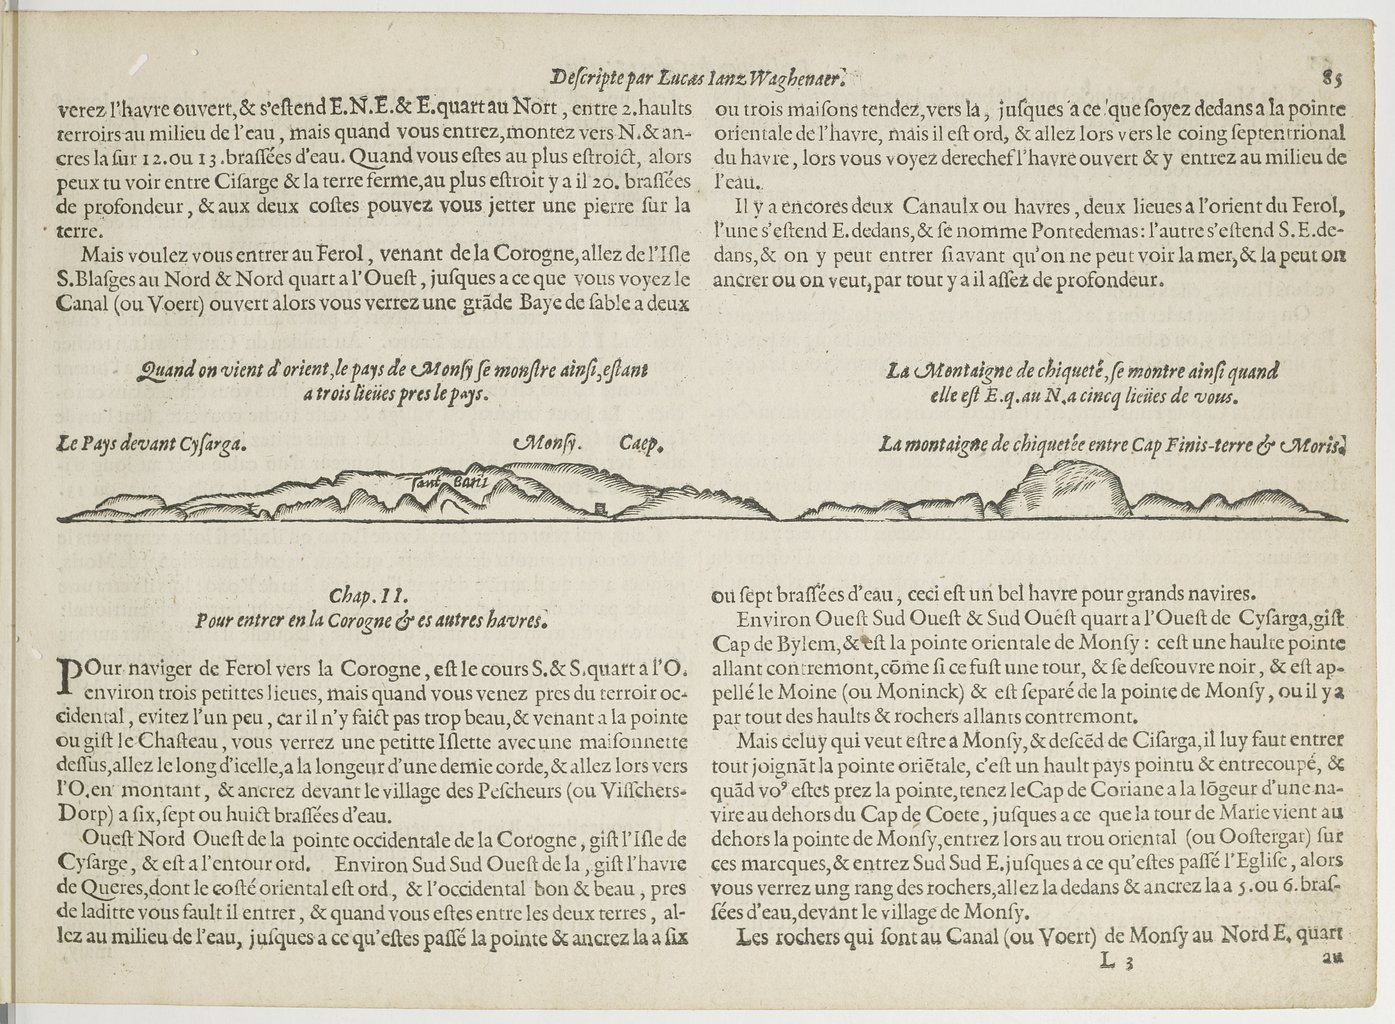 Descripte par Lucas Ianz Waghenaer.
85
verez l'havre ouvert,& s'eſtend E.N.E.& E.quart au Nort, entre 2.haults
terroirs au milieu de l'eau, mais quand vous entrez,montez vers N.& an-
cres la ſur 12.ou 13.braſſées d'eau. Quand vous eſtes au plus eſtroict, alors
peux tu voir entre Ciſarge & la terre ferme,au plus eſtroit y a il 20. braſſées
de profondeur, & aux deux coſtes pouvez vous jetter une pierre ſur la
terre.
Mais voulez vous entrer au Ferol, venant de la Corogne,allez de l'Iſle
S.Blaſges au Nord & Nord quart a l'Oueſt, juſques a ce que vous voyez le
Canal (ou Voert) ouvert alors vous verrez une grãde Baye de ſable a deux
ou trois maiſons tendez,vers la, juſques a ce que ſoyez dedans a la pointe
orientale de l'havre, mais il eſt ord, & allez lors vers le coing ſeptentrional
du havre, lors vous voyez derechef l'havre ouvert & y entrez au milieu de
l'eau.
Il y a encores deux Canaulx ou havres, deux lieues a l'orient du Ferol,
l'une s'eſtend E.dedans,& ſe nomme Pontedemas: l'autre s'eſtend S.E.de-
dans,& on y peut entrer ſi avant qu'on ne peut voir la mer,& la peut on
ancrer ou on veut,par tout y a il aſſez de profondeur.
Quand on vient d'orient,le pays de Monſy ſe monſtre ainſi,eſtant
a trois lieües pres le pays.
La Montaigne de chiqueté,ſe montre ainſi quand
elle eſt E.q.au N.a cincq lieües de vous.
Le Pays devant Cyſarga.
Monſy.
Caep.
La montaigne de chiquetée entre Cap Finis-terre & Moris.
ſant Baril
Chap.II.
Pour entrer en la Corogne & es autres havres.
POur naviger de Ferol vers la Corogne, eſt le cours S.& S.quart a l'O.
environ trois petittes lieues, mais quand vous venez pres du terroir oc-
cidental, evitez l'un peu, car il n'y faict pas trop beau,& venant a la pointe
ou giſt le Chaſteau, vous verrez une petitte Iſlette avec une maiſonnette
deſſus,allez le long d'icelle,a la longeur d'une demie corde,& allez lors vers
l'O.en montant, & ancrez devant le village des Peſcheurs (ou Viſſchers-
Dorp) a ſix,ſept ou huict braſſées d'eau.
Oueſt Nord Oueſt de la pointe occidentale de la Corogne, giſt l'Iſle de
Cyſarge, & eſt a l'entour ord. Environ Sud Sud Oueſt de la, giſt l'havre
de Queres,dont le coſté oriental eſt ord, & l'occidental bon & beau, pres
de laditte vous fault il entrer, & quand vous eſtes entre les deux terres, al-
lez au milieu de l'eau, juſques a ce qu'eſtes paſſé la pointe & ancrez la a ſix
ou ſept braſſées d'eau, ceci eſt un bel havre pour grands navires.
Environ Oueſt Sud Oueſt & Sud Oueſt quart a l'Oueſt de Cyſarga,giſt
Cap de Bylem,& eſt la pointe orientale de Monſy: ceſt une haulte pointe
allant contremont,cõme ſi ce fuſt une tour, & ſe deſcouvre noir, & eſt ap-
pellé le Moine (ou Moninck) & eſt ſeparé de la pointe de Monſy, ou il y a
par tout des haults & rochers allants contremont.
Mais celuy qui veut eſtre a Monſy,& deſcẽd de Ciſarga,il luy faut entrer
tout joignãt la pointe oriẽtale, c'eſt un hault pays pointu & entrecoupé, &
quãd voꝰ eſtes prez la pointe,tenez le Cap de Coriane a la lõgeur d'une na-
vire au dehors du Cap de Coete, juſques a ce que la tour de Marie vient au
dehors la pointe de Monſy,entrez lors au trou oriental (ou Ooſtergat) ſur
ces marcques,& entrez Sud Sud E.juſques a ce qu'eſtes paſſé l'Egliſe, alors
vous verrez ung rang des rochers,allez la dedans & ancrez la a 5.ou 6.braſ-
ſées d'eau,devant le village de Monſy.
Les rochers qui ſont au Canal (ou Voert) de Monſy au Nord E. quart
L 3
au